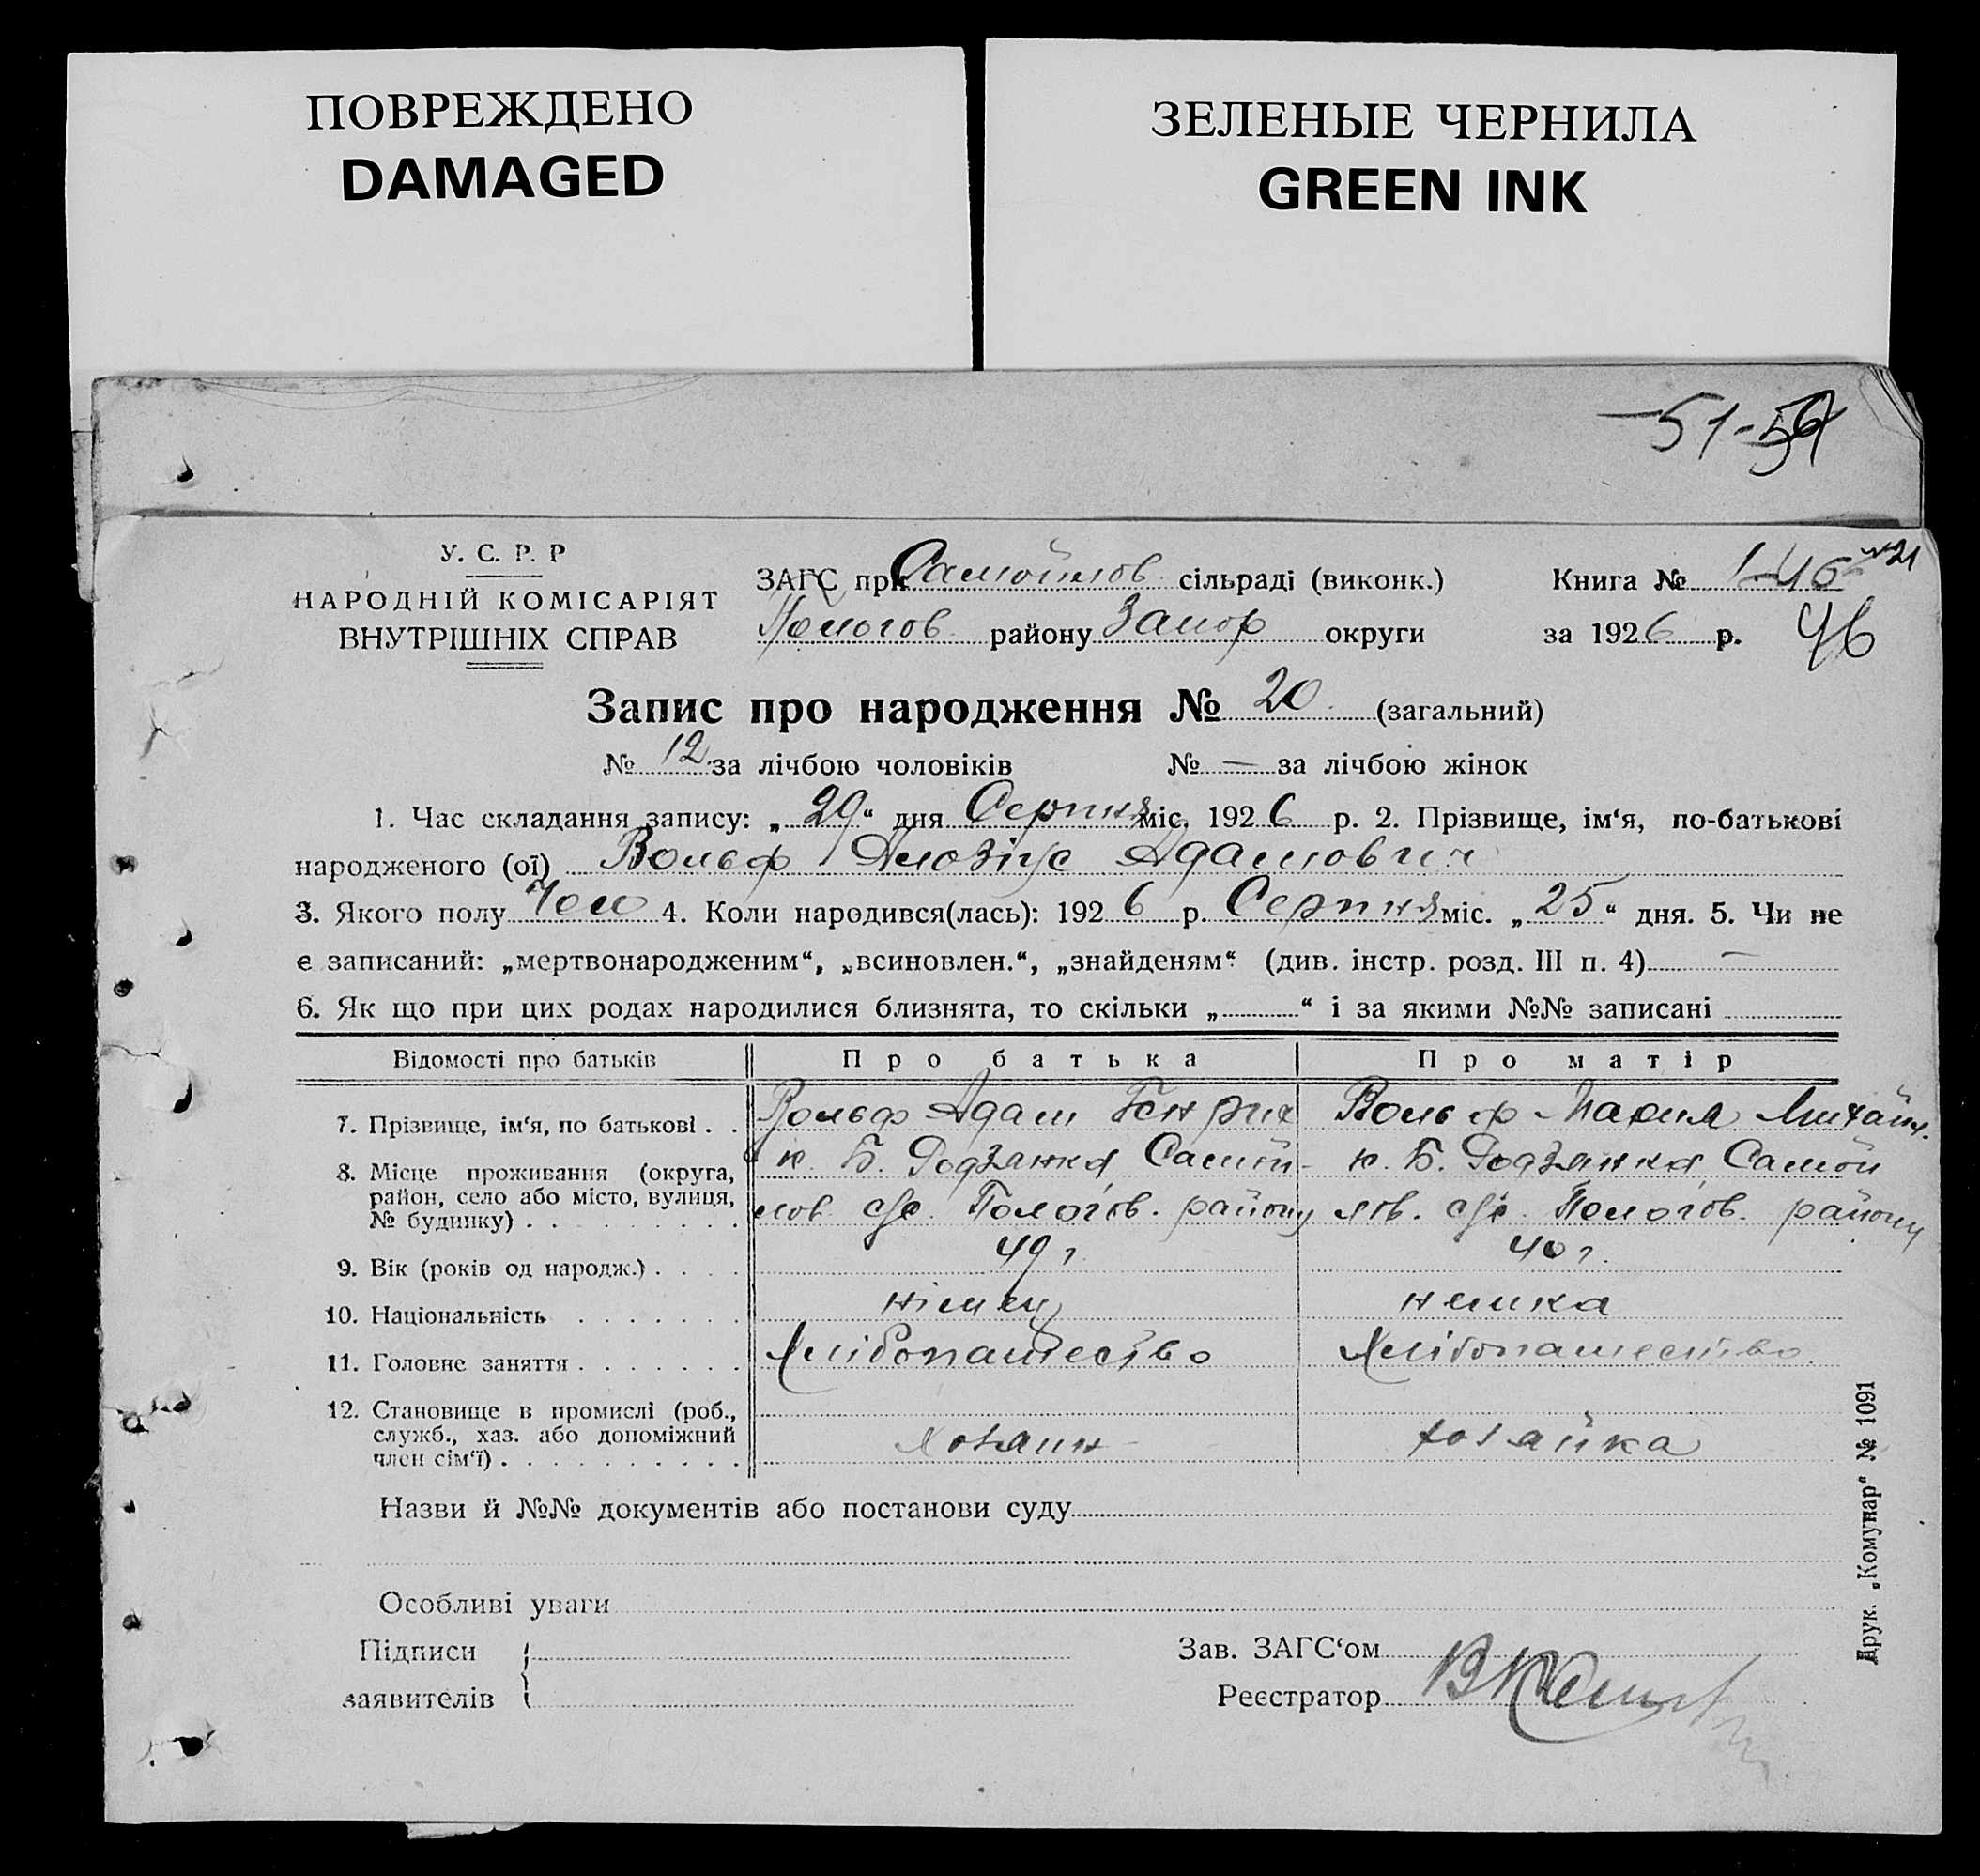 ПОВРЕЖДЕНО
DAMAGED
ЗЕЛЕНЫЕ ЧЕРНИЛА
GREEN INK
51-
У. С. Р. Р
НАРОДНІЙ КОМІСАРІЯТ
ВНУТРІШНІХ СПРАВ
ЗАГС при Самойлов сільраді (виконк.)
Пологов району Запор округи
Книга №
за 1926 р. 46
Запис про народження № 20 (загальний)
№ 12 за лічбою чоловіків № — за лічбою жінок
1. Час складання запису: „29“ дня Серпня міс. 1926 р. 2. Прізвище, ім‘я, по-батькові
народженого (ої) Вольф Алозіус Адамович
3. Якого полу Чол 4. Коли народився(лась): 1926 р. Серпня міс. „25“ дня. 5. Чи не
є записаний: „мертвонародженим“, „всиновлен.“, „знайденям“ (див. інстр. розд. III п. 4) —
6. Як що при цих родах народилися близнята, то скільки „ “ і за якими №№ записані
Відомості про батьків Про батька Про матір
7. Прізвище, ім‘я, по батькові . . Вольф Адам Генрих Вольф Мария Михайл.
8. Місце проживання (округа, к. Б. Родзянка Самой- к. Б. Родзянка Самой
район, село або місто, вулиця,
№ будинку) . лов с/с. Пологов. району лов. с/с. Пологов. району
9. Вік (років од народж.) . 49 г. 40 г.
10. Національність німець немка
11. Головне заняття . Хлібопашество Хлібопашество.
12. Становище в промислі (роб.,
служб., хаз. або допоміжний
член сім‘ї) . Хозаин хозайка
Назви й №№ документів або постанови суду
Особливі уваги
Підписи
заявителів
Зав. ЗАГС‘ом
Реєстратор
Друк. „Комунар“ № 1091